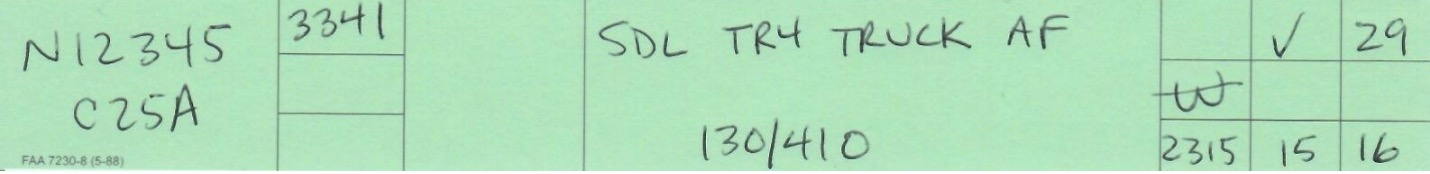 N12345
C25A
FAA 7230-8 (5-88)
3341
SDL TR4 TRUCK AF
130/410
✓ 29
W
2315 15 16